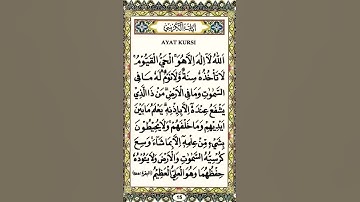 آية الكرسي
AYAT KURSI
اَللّٰهُ لَآ اِلٰهَ اِلَّا هُوَۚ اَلْحَيُّ الْقَيُّوْمُ
لَا تَأْخُذُهٗ سِنَةٌ وَّلَا نَوْمٌۗ لَهٗ مَا فِى
السَّمٰوٰتِ وَمَا فِى الْاَرْضِۗ مَنْ ذَا الَّذِيْ
يَشْفَعُ عِنْدَهٗٓ اِلَّا بِاِذْنِهٖۗ يَعْلَمُ مَا بَيْنَ
اَيْدِيْهِمْ وَمَا خَلْفَهُمْۚ وَلَا يُحِيْطُوْنَ
بِشَيْءٍ مِّنْ عِلْمِهٖٓ اِلَّا بِمَا شَاۤءَۚ وَسِعَ
كُرْسِيُّهُ السَّمٰوٰتِ وَالْاَرْضَۚ وَلَا يَـُٔوْدُهٗ
حِفْظُهُمَاۚ وَهُوَ الْعَلِيُّ الْعَظِيْمُ
15